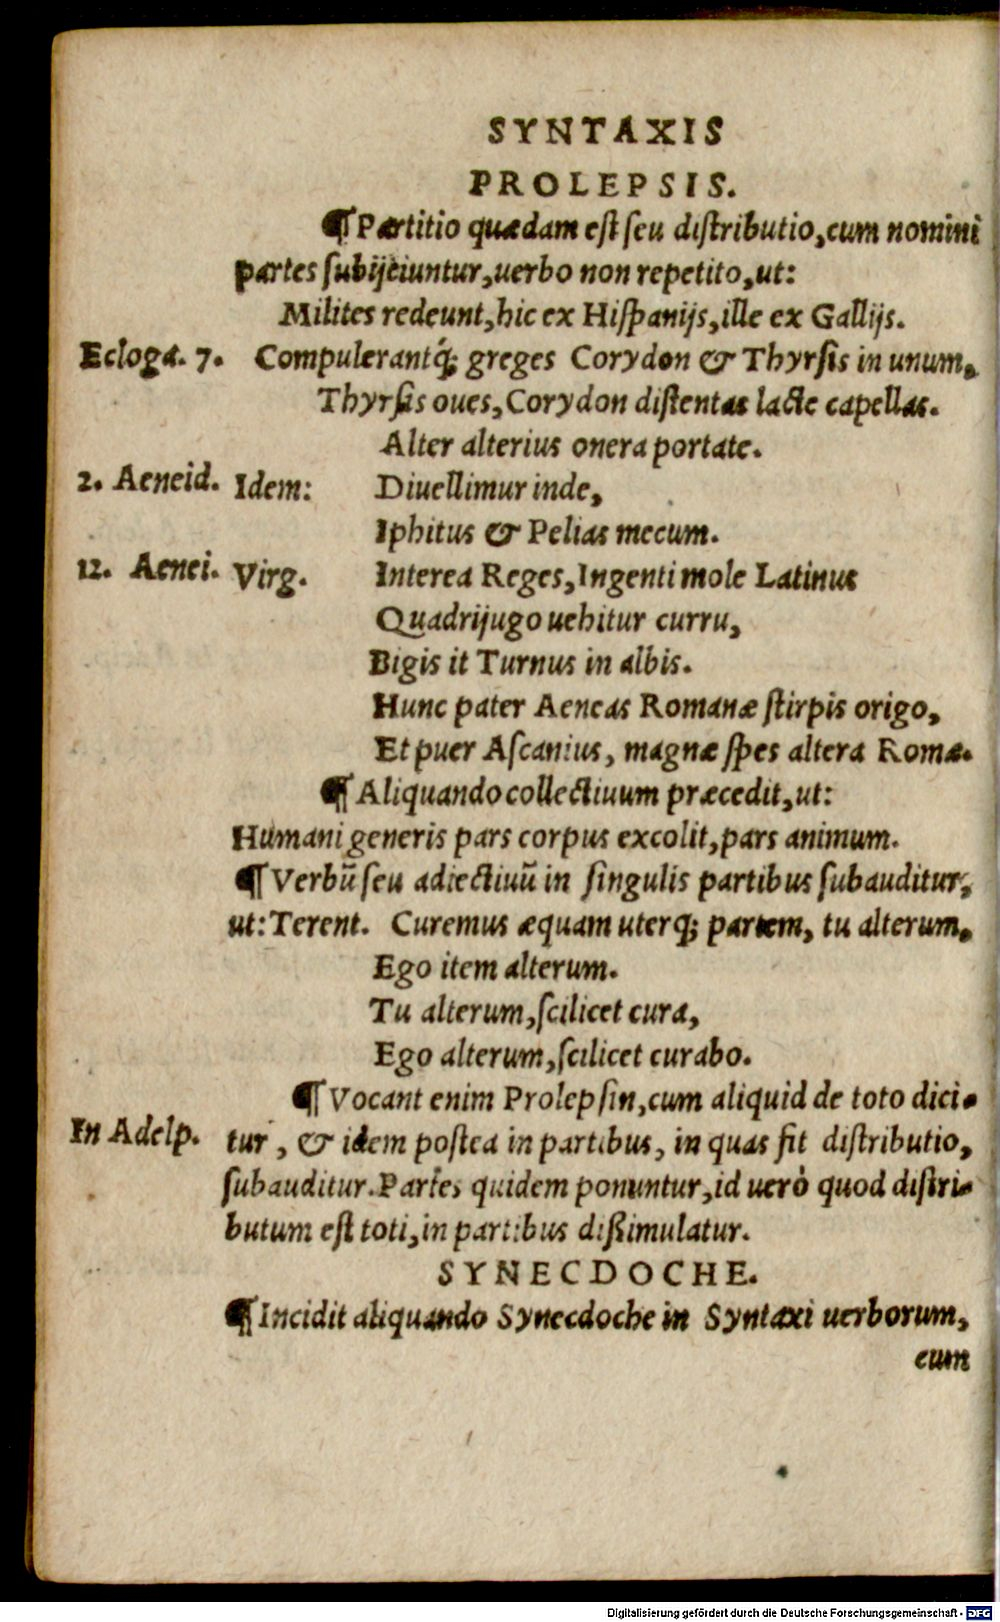 SYNTAXIS
PROLEPSIS.
¶ Partitio quædam est seu distributio, cum nomini
partes subijciuntur, uerbo non repetito, ut:
Milites redeunt, hic ex Hispanijs, ille ex Gallijs.
Ecloga. 7. Compulerantq́; greges Corydon & Thyrsis in unum,
Thyrsis oues, Corydon distentas lacte capellas.
Alter alterius onera portate.
2. Aeneid. Idem: Diuellimur inde,
Iphitus & Pelias mecum.
12. Aenei. Virg. Interea Reges, Ingenti mole Latinus
Quadrijugo uehitur curru,
Bigis it Turnus in albis.
Hunc pater Aeneas Romanæ stirpis origo,
Et puer Ascanius, magnæ spes altera Romæ.
¶ Aliquando collectiuum præcedit, ut:
Humani generis pars corpus excolit, pars animum.
¶ Verbũ seu adiectiuũ in singulis partibus subauditur,
ut: Terent. Curemus æquam uterq; partem, tu alterum,
Ego item alterum.
Tu alterum, scilicet cura,
Ego alterum, scilicet curabo.
¶ Vocant enim Prolepsin, cum aliquid de toto dici-
In Adelp. tur, & idem postea in partibus, in quas fit distributio,
subauditur. Partes quidem ponuntur, id uerò quod distri-
butum est toti, in partibus dißimulatur.
SYNECDOCHE.
¶ Incidit aliquando Synecdoche in Syntaxi uerborum,
cum
Digitalisierung gefördert durch die Deutsche Forschungsgemeinschaft - DFG